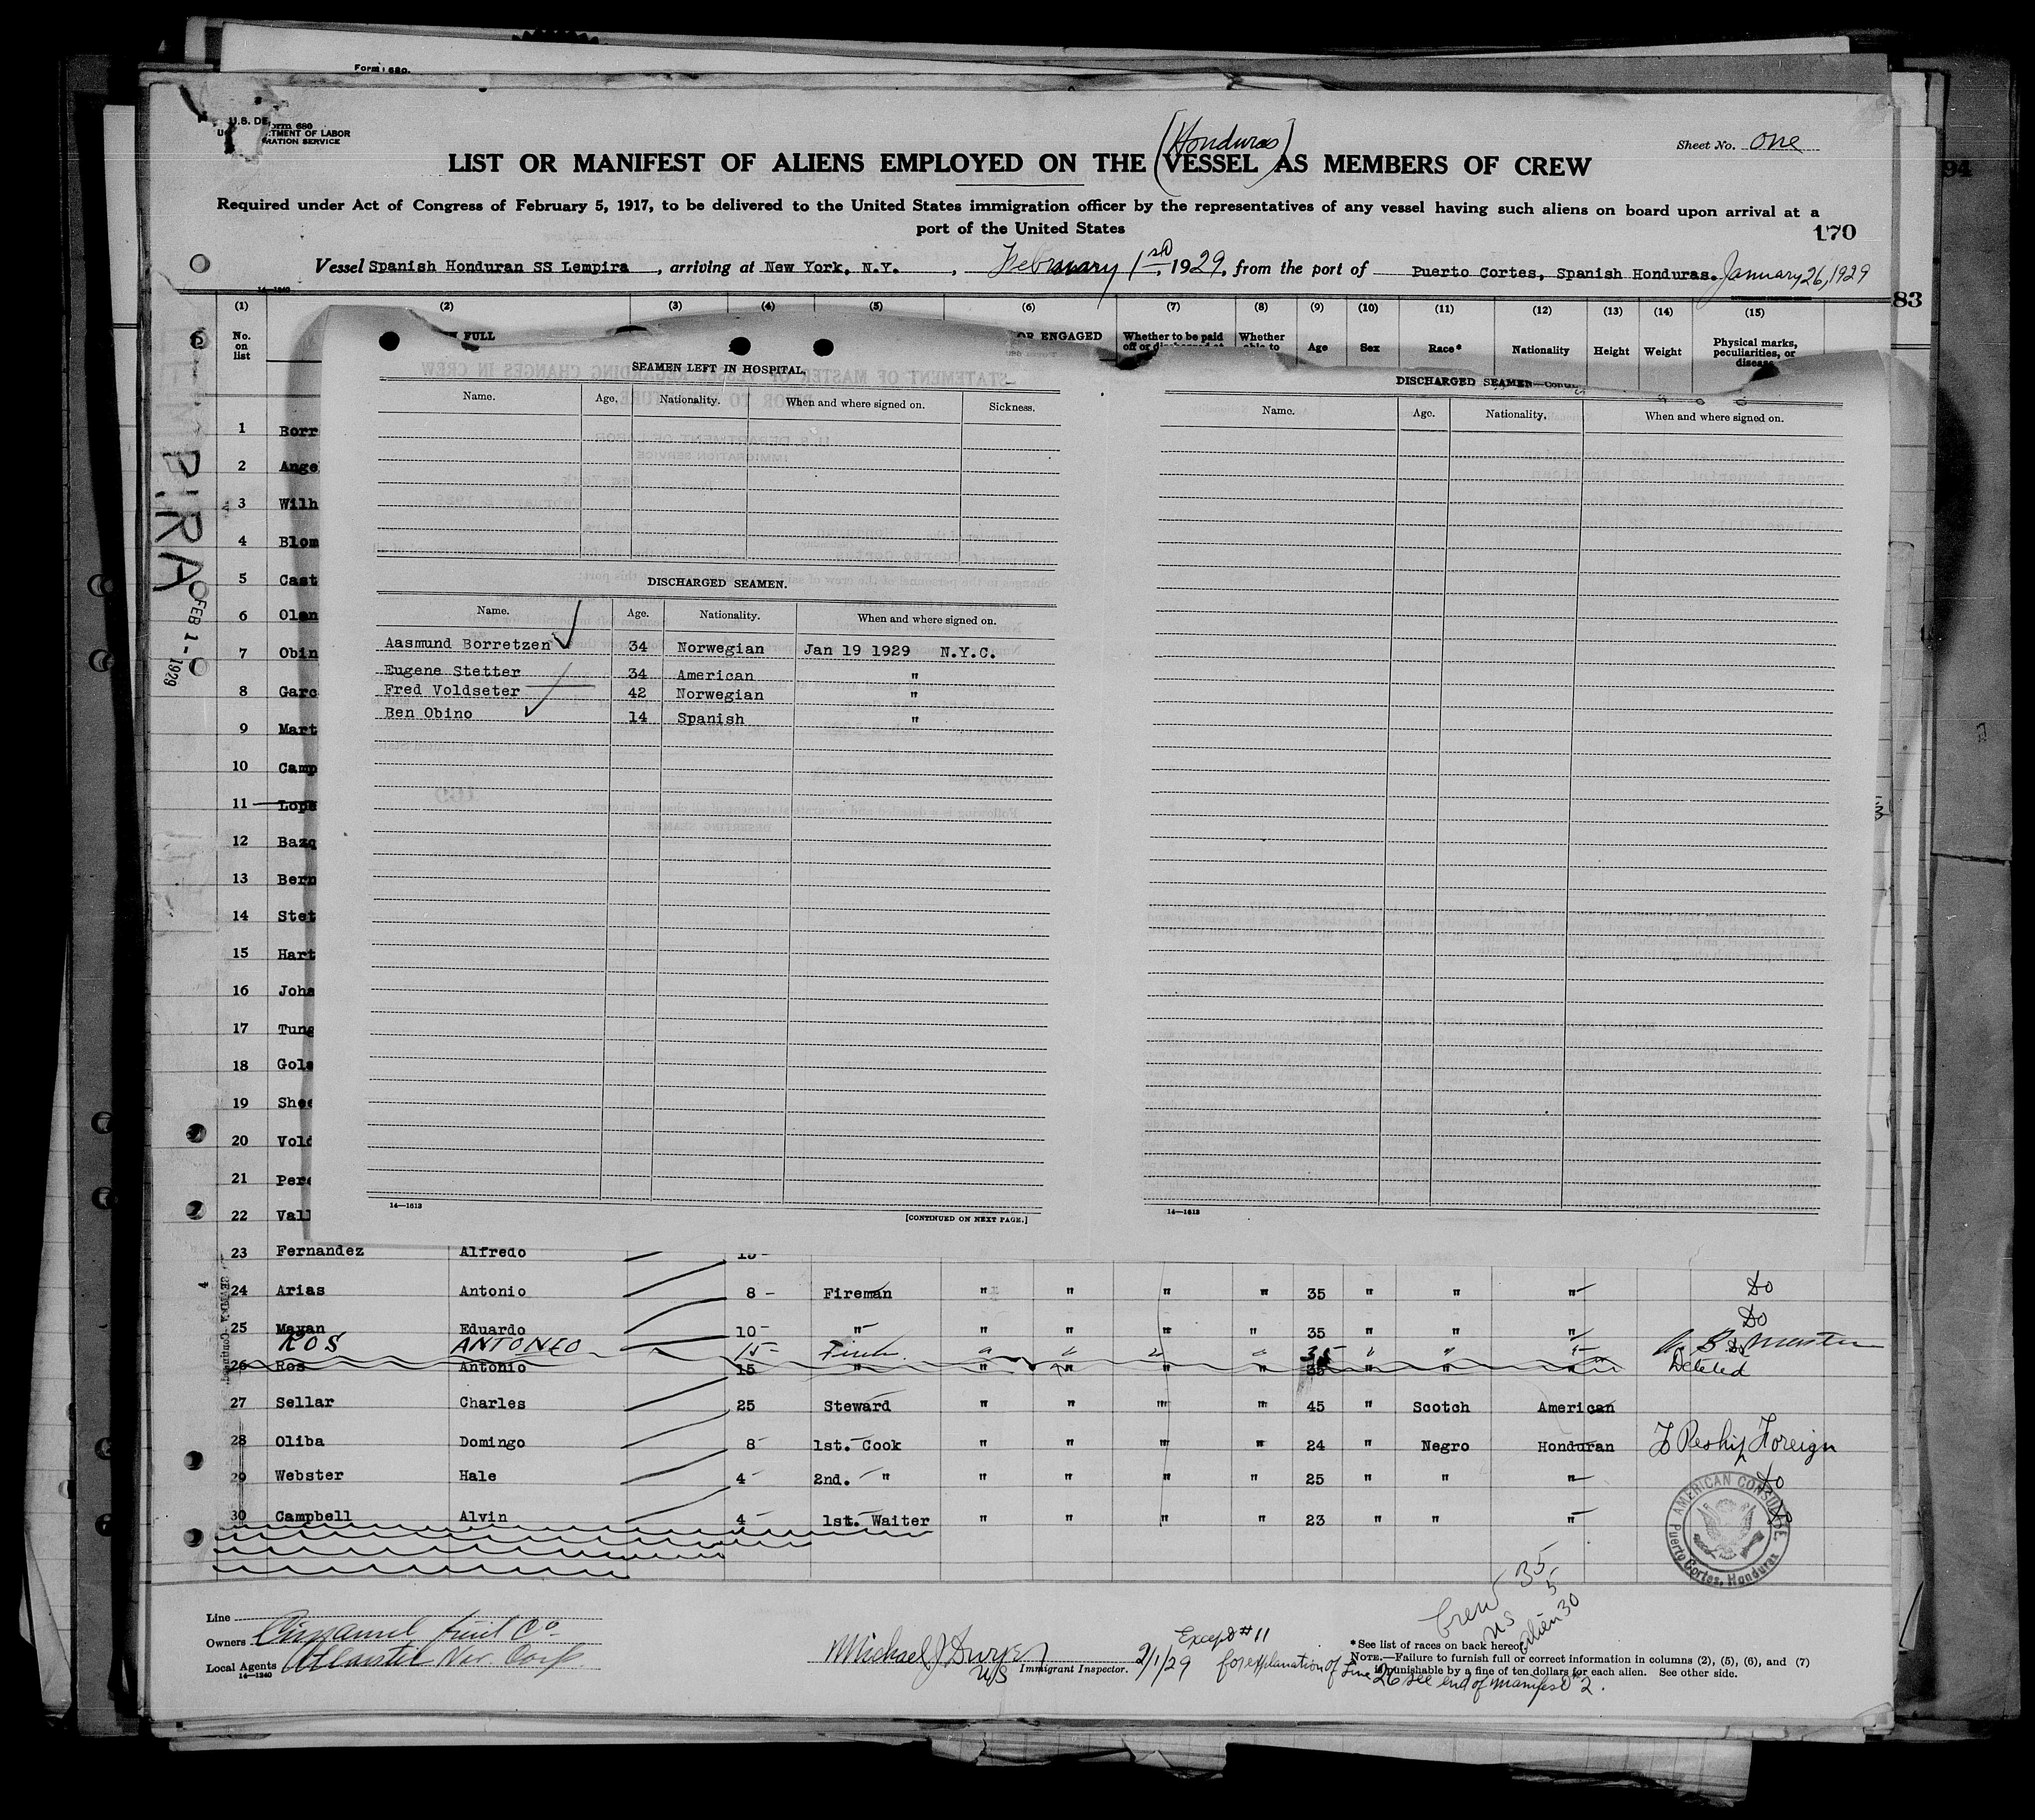 Form 680.
Form 680
U.S. DE
TMENT OF LABOR
RATION SERVICE
(Honduras)
Sheet No. One
LIST OR MANIFEST OF ALIENS EMPLOYED ON THE VESSEL AS MEMBERS OF CREW
Required under Act of Congress of February 5, 1917, to be delivered to the United States immigration officer by the representatives of any vessel having such aliens on board upon arrival at a
port of the United States
170
94
Vessel Spanish Honduran SS Lempira , arriving at New York, N.Y. , February 1st, 1929, from the port of Puerto Cortes, Spanish Honduras. January 26, 1929
14-1240
83
(1) (2) (3) (4) (5) (6) (7) (8) (9) (10) (11) (12) (13) (14) (15)
No. on list
FULL
OR ENGAGED
Whether to be paid off or discharged at
Whether able to
Age Sex Race* Nationality Height Weight
Physical marks, peculiarities, or disease
PIRA
FEB 1 - 1929
SEAMEN LEFT IN HOSPITAL,
Name. Age. Nationality. When and where signed on. Sickness.
DISCHARGED SEAMEN.
Name. Age. Nationality. When and where signed on.
Aasmund Borretzen 34 Norwegian Jan 19 1929 N.Y.C.
Eugene Stetter 34 American "
Fred Voldseter 42 Norwegian "
Ben Obino 14 Spanish "
14—1613
[CONTINUED ON NEXT PAGE.]
DISCHARGED SEAMEN—Contin
Name. Age. Nationality. When and where signed on.
14—1613
1 Borr
2 Ange
3 Wilh
4 Blom
5 Cast
6 Olan
7 Obin
8 Garc
9 Mart
10 Camp
11 Lope
12 Bazq
13 Bern
14 Stet
15 Hart
16 Joha
17 Tung
18 Gols
19 Shee
20 Vold
21 Pere
22 Vall
23 Fernandez Alfredo 15 -
24 Arias Antonio 8 - Fireman " " " " 35 " " " Do
25 Mayan Eduardo 10 - " " " " " 35 " " " Do
ROS ANTONIO 15 - " " " " 35 " " "
26 Ros Antonio 15 " " " " " 35 " " " Deleted
27 Sellar Charles 25 Steward " " " " 45 " Scotch American
28 Oliba Domingo 8 - 1st. Cook " " " " 24 " Negro Honduran To Reship Foreign
29 Webster Hale 4 - 2nd. " " " " " 25 " " " Do
30 Campbell Alvin 4 - 1st. Waiter " " " " 23 " " " Do
AMERICAN CONSULATE
Puerto Cortes, Honduras
Crew 35
US 5
Alien 30
Line
Owners Cuyamel Fruit Co
Local Agents Atlantic Nav. Corp.
14—1240
Michael J Dwyer
U/S Immigrant Inspector.
2/1/29
Except # 11
for explanation of line 26 see end of manifest #2.
* See list of races on back hereof.
NOTE.—Failure to furnish full or correct information in columns (2), (5), (6), and (7)
is punishable by a fine of ten dollars for each alien. See other side.